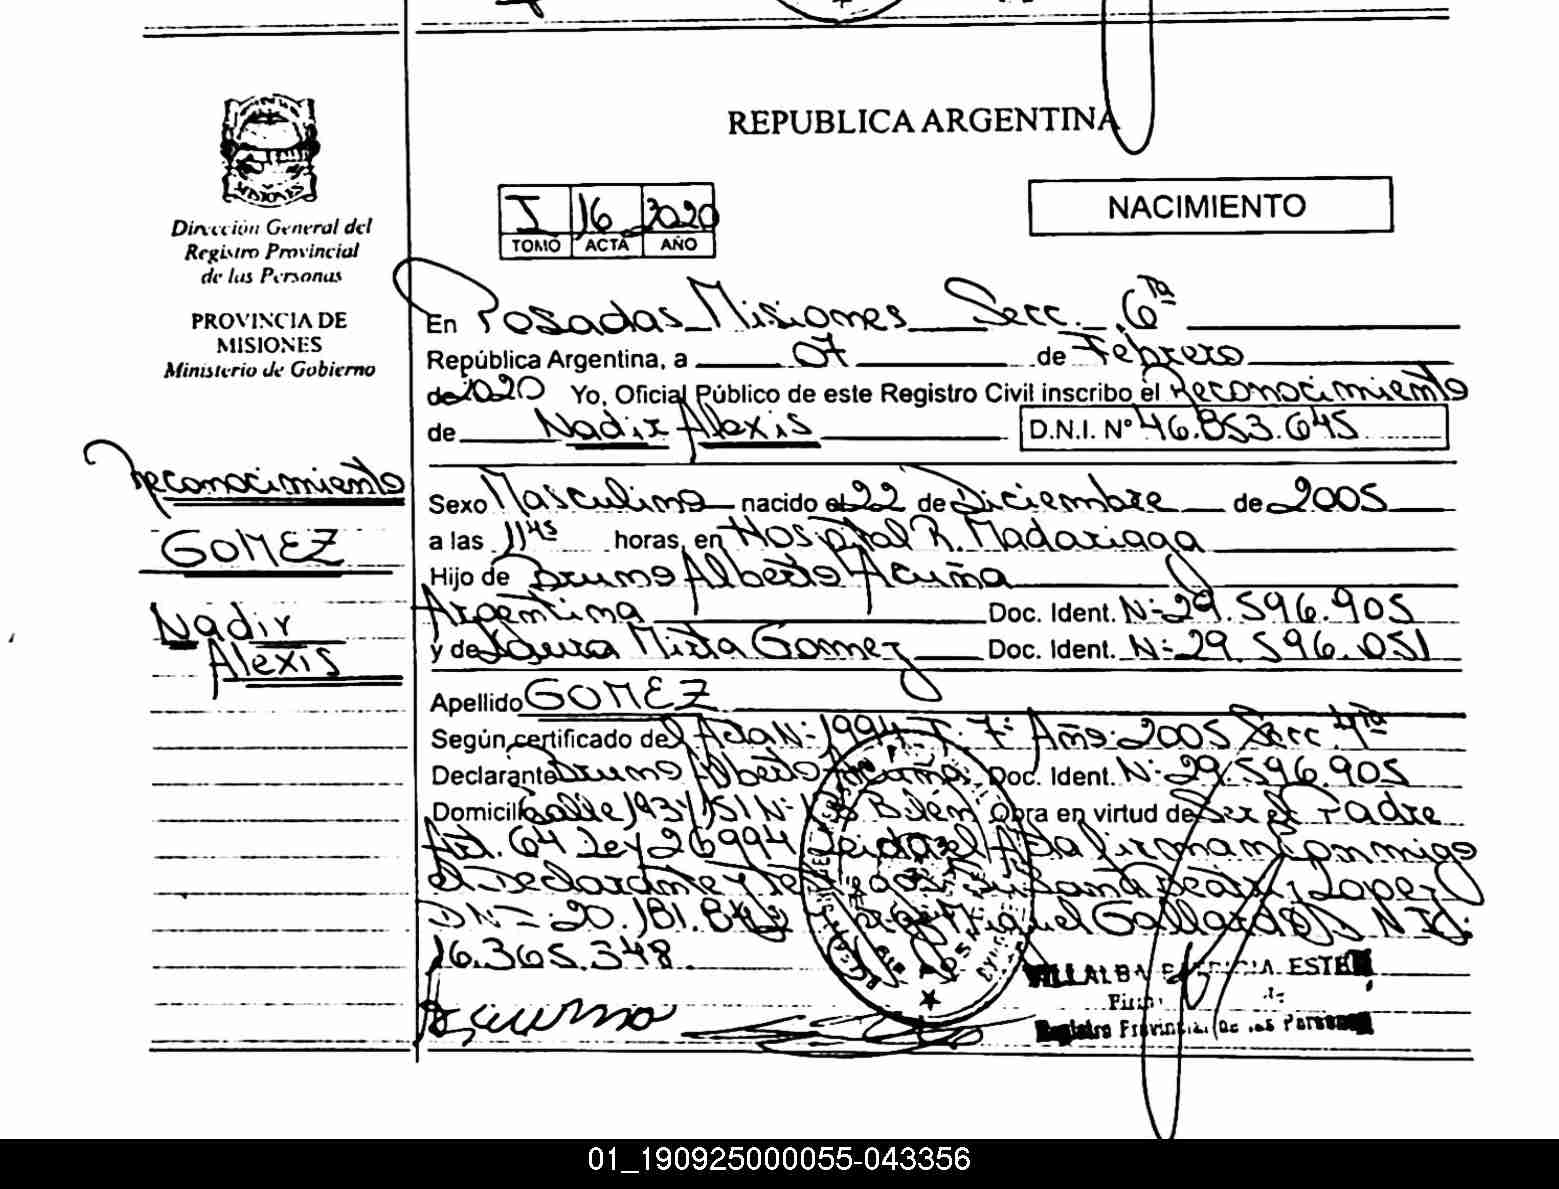 REPUBLICA ARGENTINA
MISIONES
Dirección General del
Registro Provincial
de las Personas
PROVINCIA DE
MISIONES
Ministerio de Gobierno
I 16 2020
TOMO ACTA AÑO
NACIMIENTO
En Posadas Misiones Secc. 6ta
República Argentina, a 07 de Febrero
de 2020 Yo, Oficial Público de este Registro Civil inscribo el Reconocimiento
de Nadir Alexis D.N.I. Nº 46.853.645
Reconocimiento
GOMEZ
Nadir
Alexis
Sexo Masculino nacido el 22 de Diciembre de 2005
a las 11 45 horas, en Hospital R. Madariaga
Hijo de Bruno Alberto Acuña
Argentina Doc. Ident. Nº 29.596.905
y de Laura Mirta Gomez Doc. Ident. Nº 29.596.051
Apellido GOMEZ
Según certificado del Acta Nº 1994 T. 7º Año 2005 Secc 4ta
Declarante Bruno Alberto Acuña Doc. Ident. Nº 29.596.905
Domicilio Calle Belén Obra en virtud de Ser el Padre
Art. 64 Ley 26994 Leida el Acta firman conmigo
el Declarante y Testigos Susana Beatriz Lopez
DNI 20.181.842 Jorge Miguel Gallardo D.N.I.:
16.365.348.
VILLALBA ESTER
Registro Provincial de las Personas
01_190925000055-043356